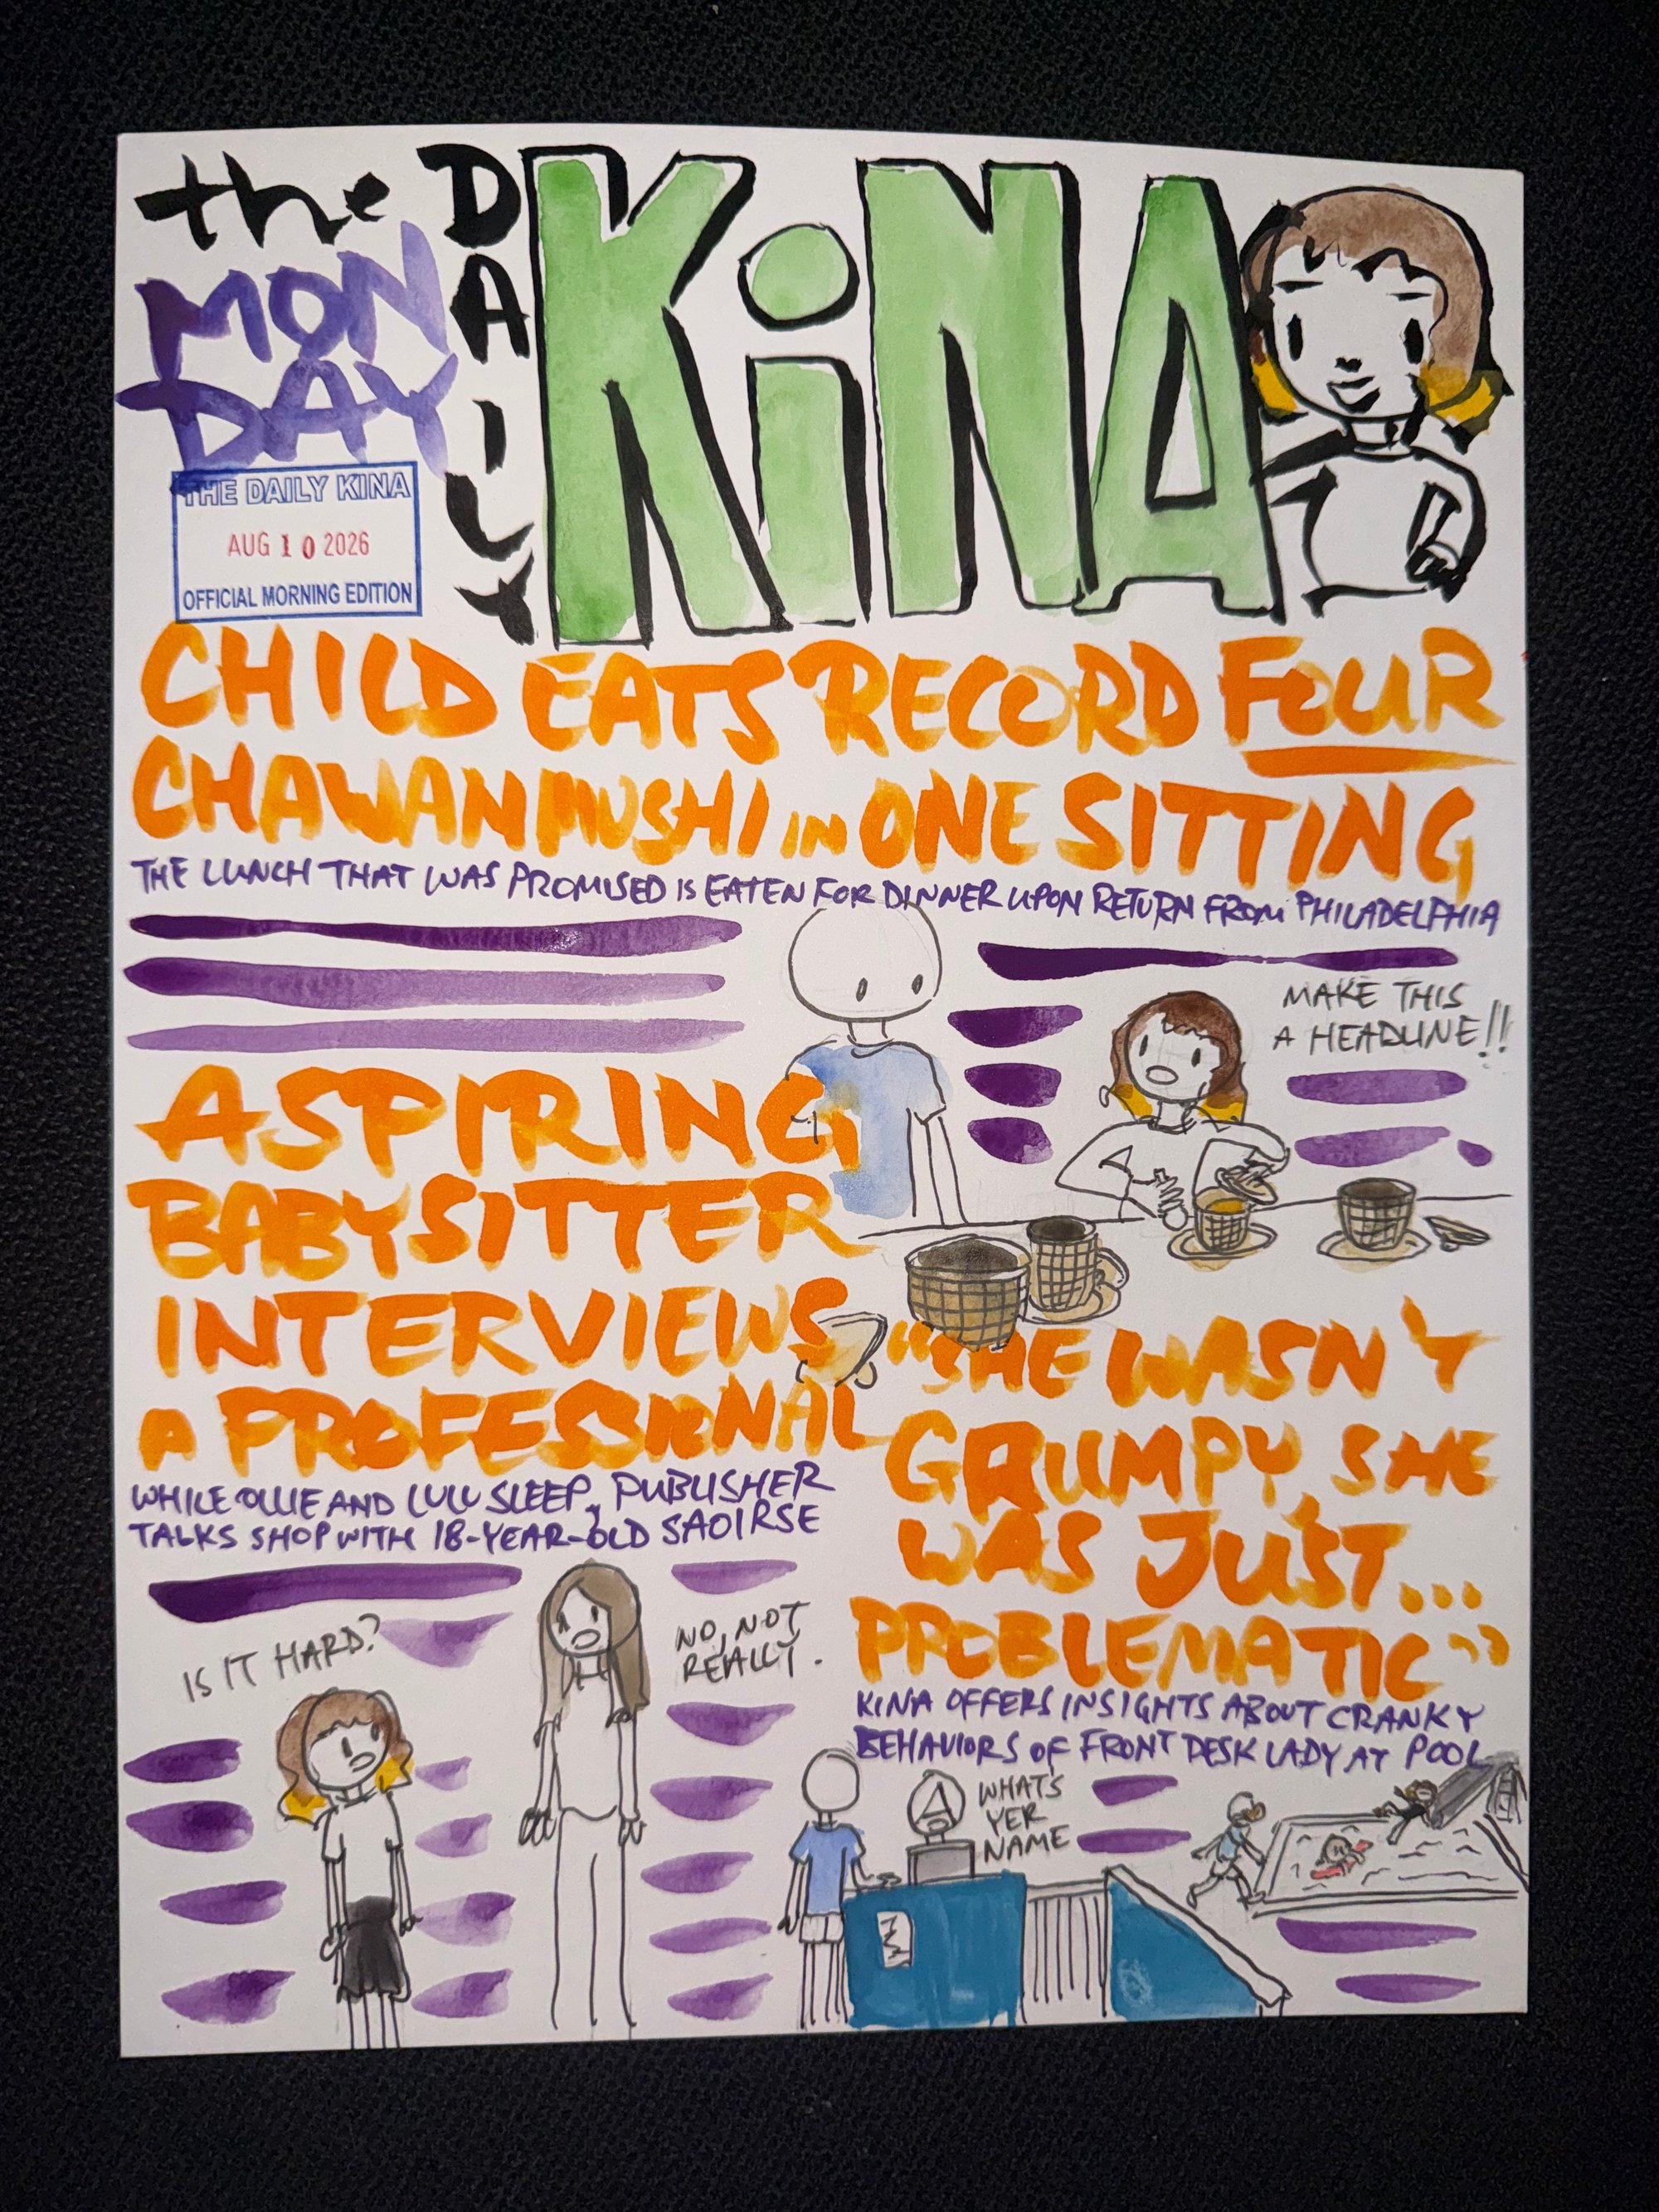 the
MON
DAY
DAILY
KiNA
THE DAILY KINA
AUG 10 2026
OFFICIAL MORNING EDITION
CHILD EATS RECORD FOUR
CHAWANMUSHI IN ONE SITTING
THE LUNCH THAT WAS PROMISED IS EATEN FOR DINNER UPON RETURN FROM PHILADELPHIA
MAKE THIS
A HEADLINE!!
ASPIRING
BABYSITTER
INTERVIEWS
A PROFESSIONAL
WHILE OLLIE AND LULU SLEEP, PUBLISHER
TALKS SHOP WITH 18-YEAR-OLD SAOIRSE
IS IT HARD?
NO, NOT
REALLY.
"SHE WASN'T
GRUMPY, SHE
WAS JUST...
PROBLEMATIC"
KINA OFFERS INSIGHTS ABOUT CRANKY
BEHAVIORS OF FRONT DESK LADY AT POOL
WHATS
YER
NAME